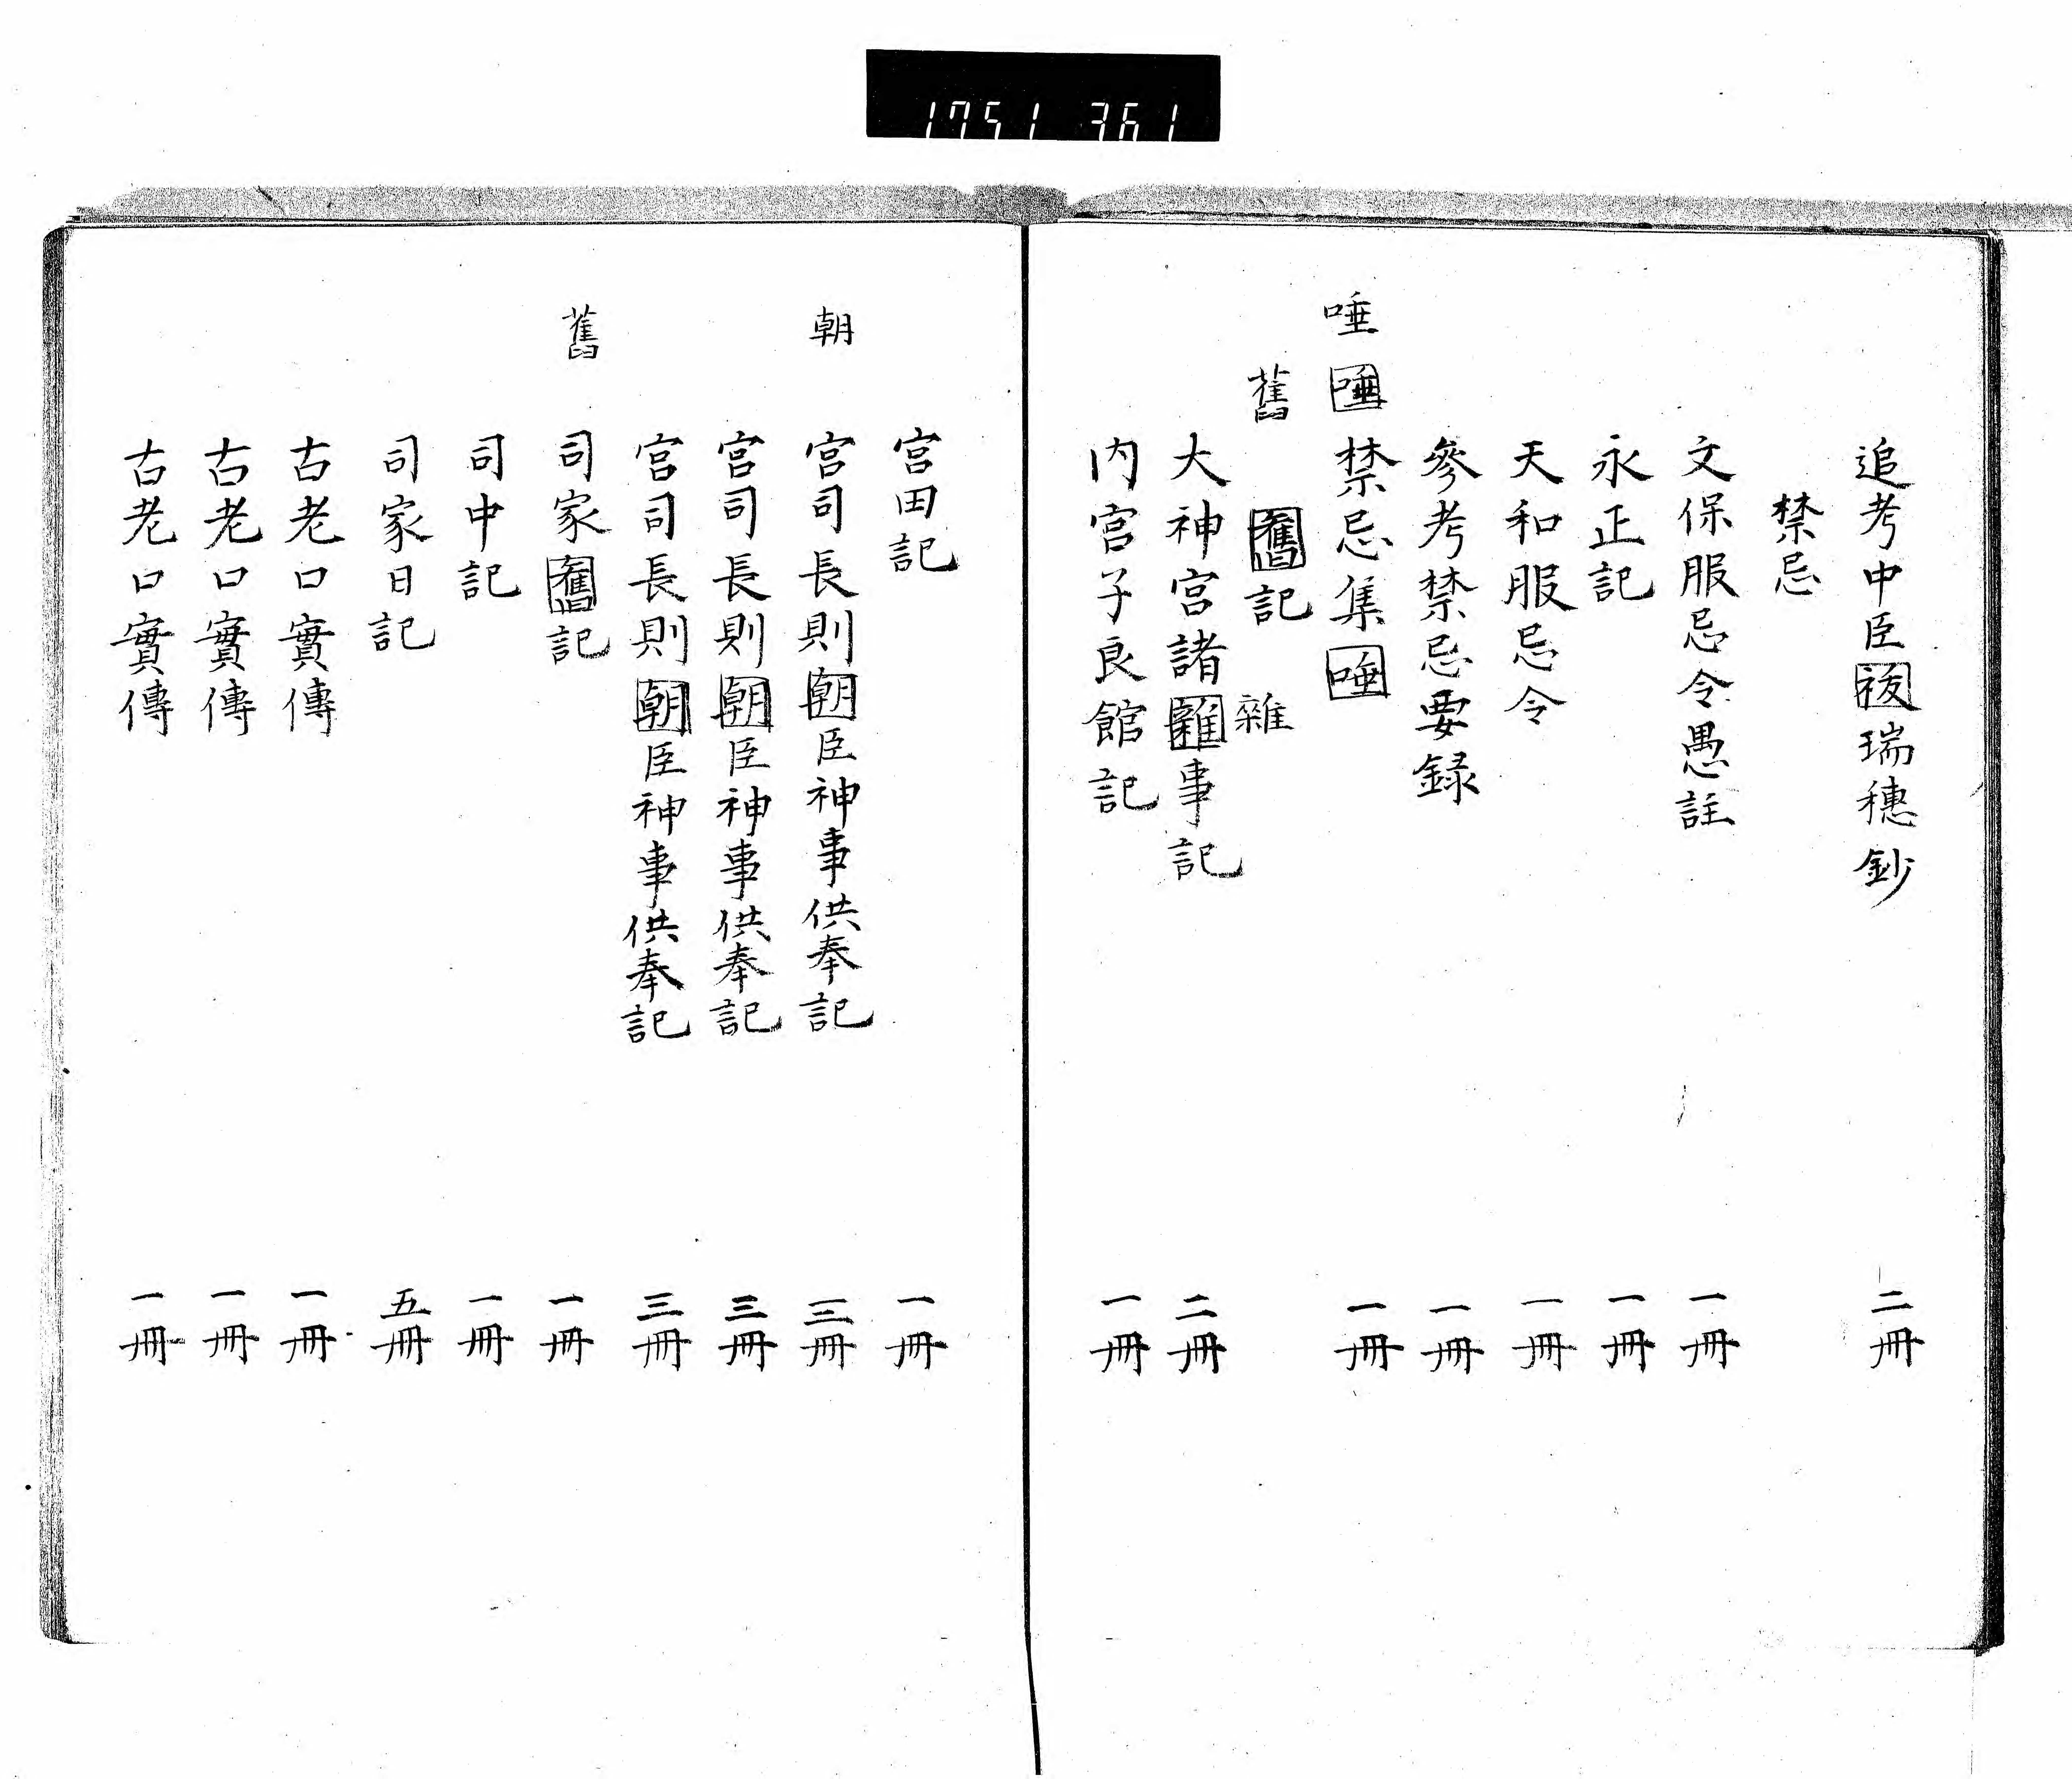 1751 361
追考中臣祓瑞穗鈔 二冊
禁忌
文保服忌令愚註 一冊
永正記 一冊
天和服忌令 一冊
參考禁忌要録 一冊
唾 唾禁忌集唾 一冊
舊 舊記
雜
大神宮諸雜事記 二冊
内宮子良館記 一冊
宮田記 一冊
朝
宮司長則朝臣神事供奉記 三冊
宮司長則朝臣神事供奉記 三冊
宮司長則朝臣神事供奉記 三冊
舊
司家舊記 一冊
司中記 一冊
司家日記 五冊
古老口實傳 一冊
古老口實傳 一冊
古老口實傳 一冊